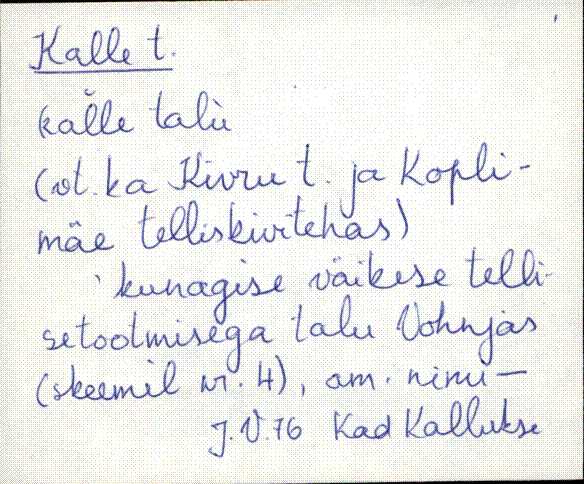 Kalle t.
kălle talu
(vt. ka Kivru t. ja Kopli-
mäe telliskivitehas)
kunagise väikese telli-
setootmisega talu Vohnjas
(skeemil nr. 4), am. nimi —
J.V.76 Kad Kallukse